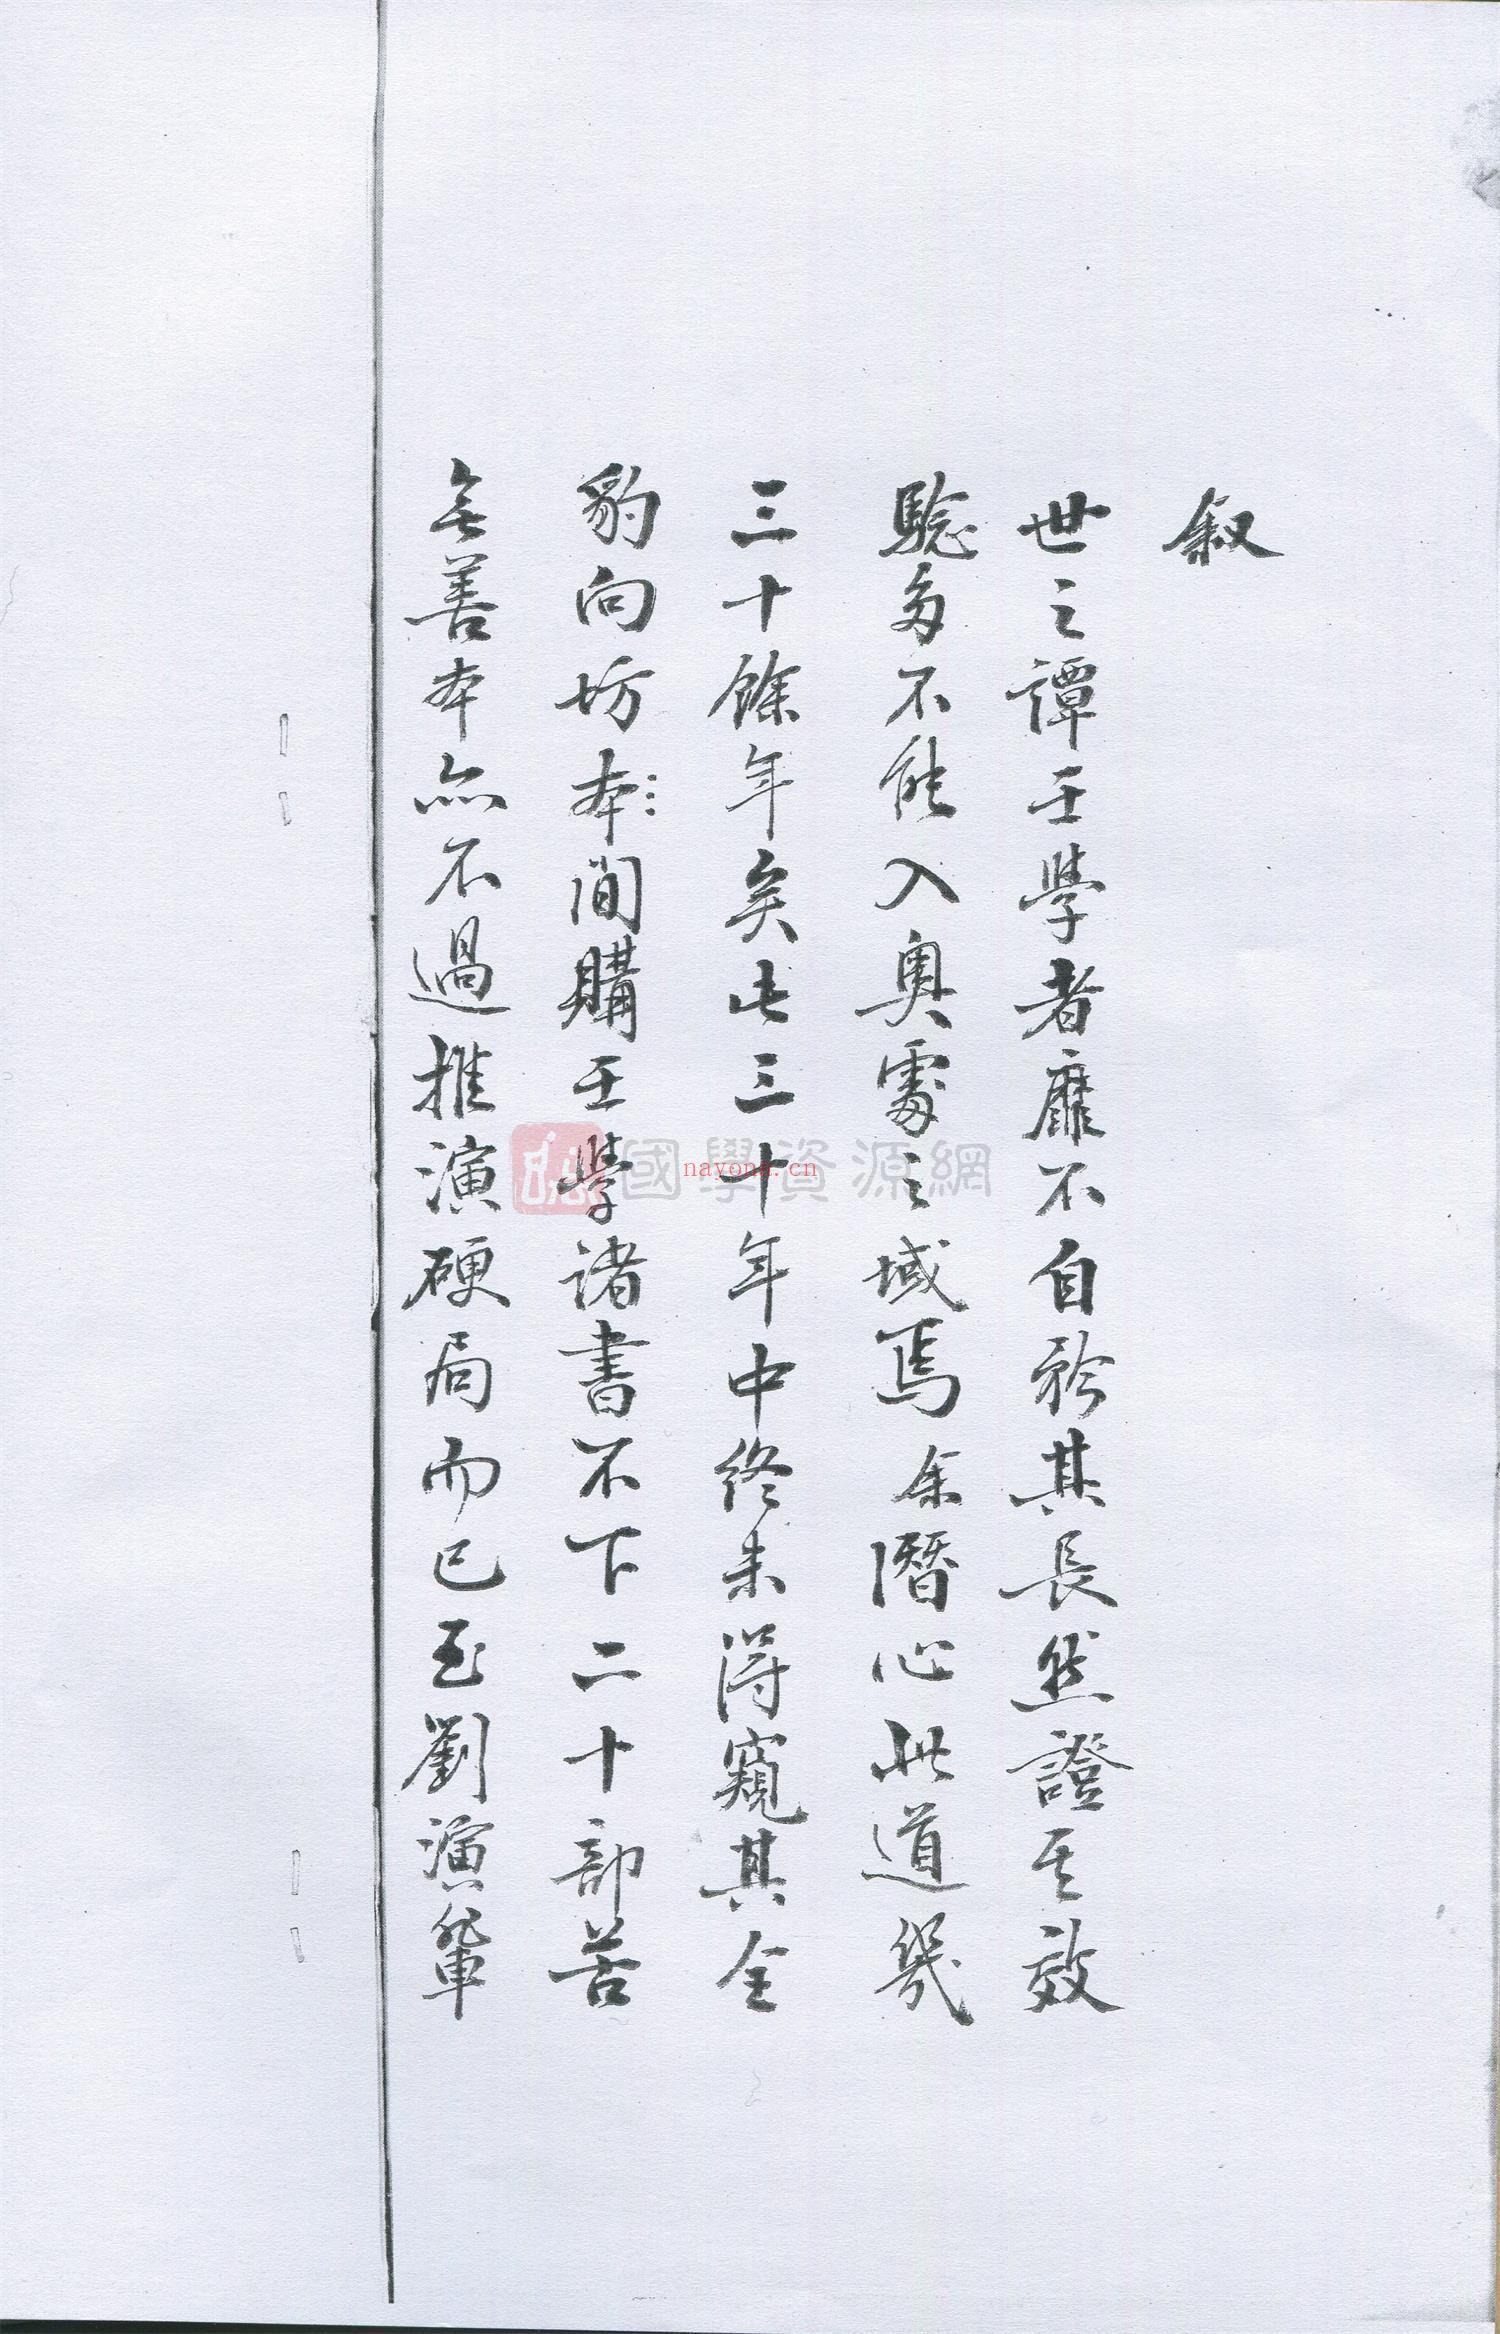 叙
世之譚壬學者靡不自矜其長然證其效
騐多不能入奧窔之域焉余潛心此道幾
三十餘年矣此三十年中終未得窺其全
豹向坊本間購壬學諸書不下二十部苦
無善本亦不過推演硬局而已至劉演輩
國學資源網
nayona.cn